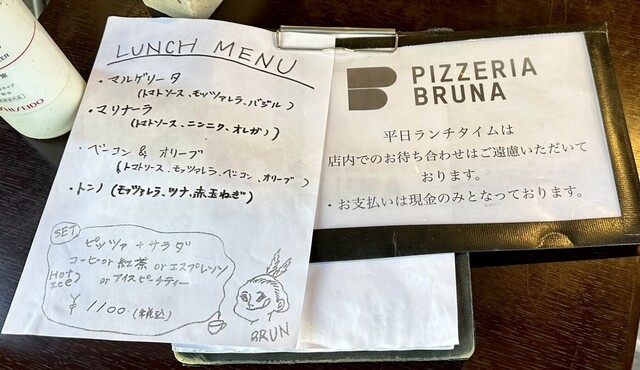 LUNCH MENU
・マルゲリータ
(トマトソース、モッツァレラ、バジル)
・マリナーラ
(トマトソース、ニンニク、オレガノ)
・ベーコン & オリーブ
(トマトソース、モッツァレラ、ベーコン、オリーブ)
・トンノ (モッツァレラ、ツナ、赤玉ねぎ)
SET
ピッツァ + サラダ
コーヒー or 紅茶 or エスプレッソ
Hot
ice
or アイスピーチティー
¥1100 (税込)
BRUN
PIZZERIA
BRUNA
平日ランチタイムは
店内でのお待ち合わせはご遠慮いただいて
おります。
・お支払いは現金のみとなっております。
SHISEIDO